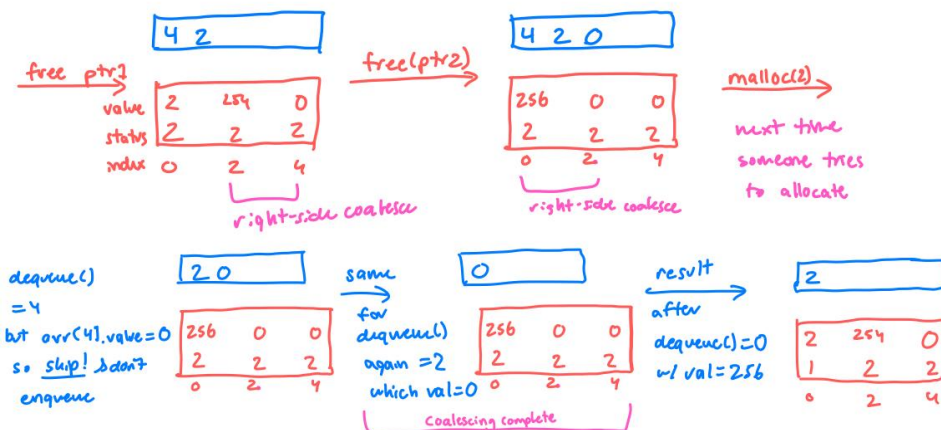 4 2
free ptr1
value 2 254 0
status 2 2 2
index 0 2 4
right-side coalesce
free(ptr2)
4 2 0
256 0 0
2 2 2
0 2 4
right-side coalesce
malloc(2)
next time
someone tries
to allocate
dequeue()
=4
but arr[4].value=0
so skip! & don't
enqueue
2 0
256 0 0
2 2 2
0 2 4
same
for
dequeue()
again =2
which val=0
0
256 0 0
2 2 2
0 2 4
coalescing complete
result
after
dequeue()=0
w/ val=256
2
2 254 0
1 2 2
0 2 4